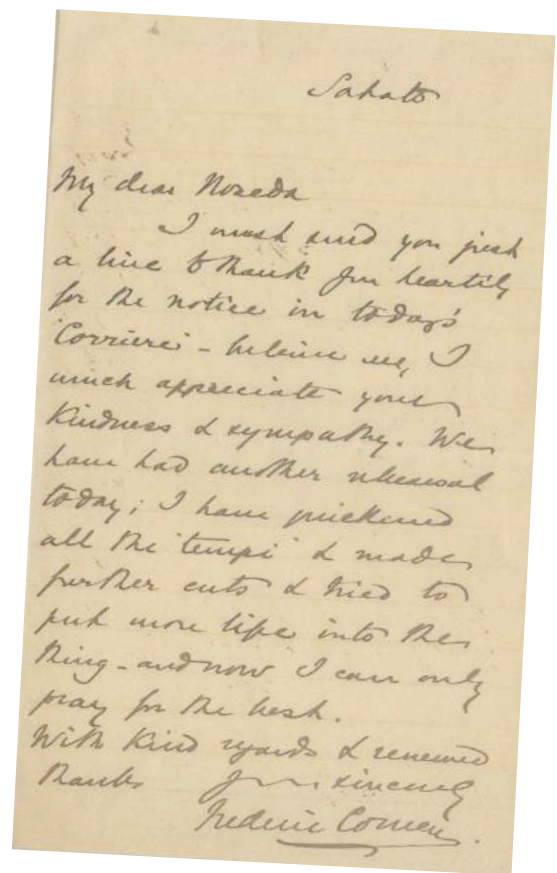 Sabato
My dear Noseda
I must send you just
a line to thank you heartily
for the notice in today's
'Corriere' - believe me, I
much appreciate your
kindness & sympathy. We
have had another rehearsal
today; I have quickened
all the 'tempi' & made
further cuts & tried to
put more life into the
thing - and now I can only
pray for the best.
With kind regards & renewed
thanks yours sincerely
Frederic Cowen.